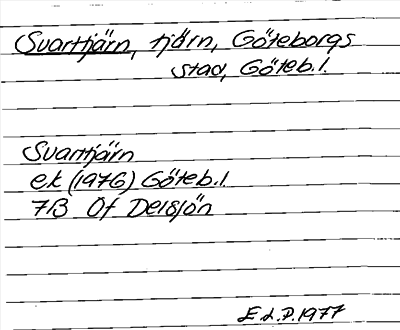 Svarttjärn, tjärn, Göteborgs
stad, Göteb.l.
Svarttjärn
ek (1976) Göteb.l.
7B Of Delsjön
E.L.P. 1977